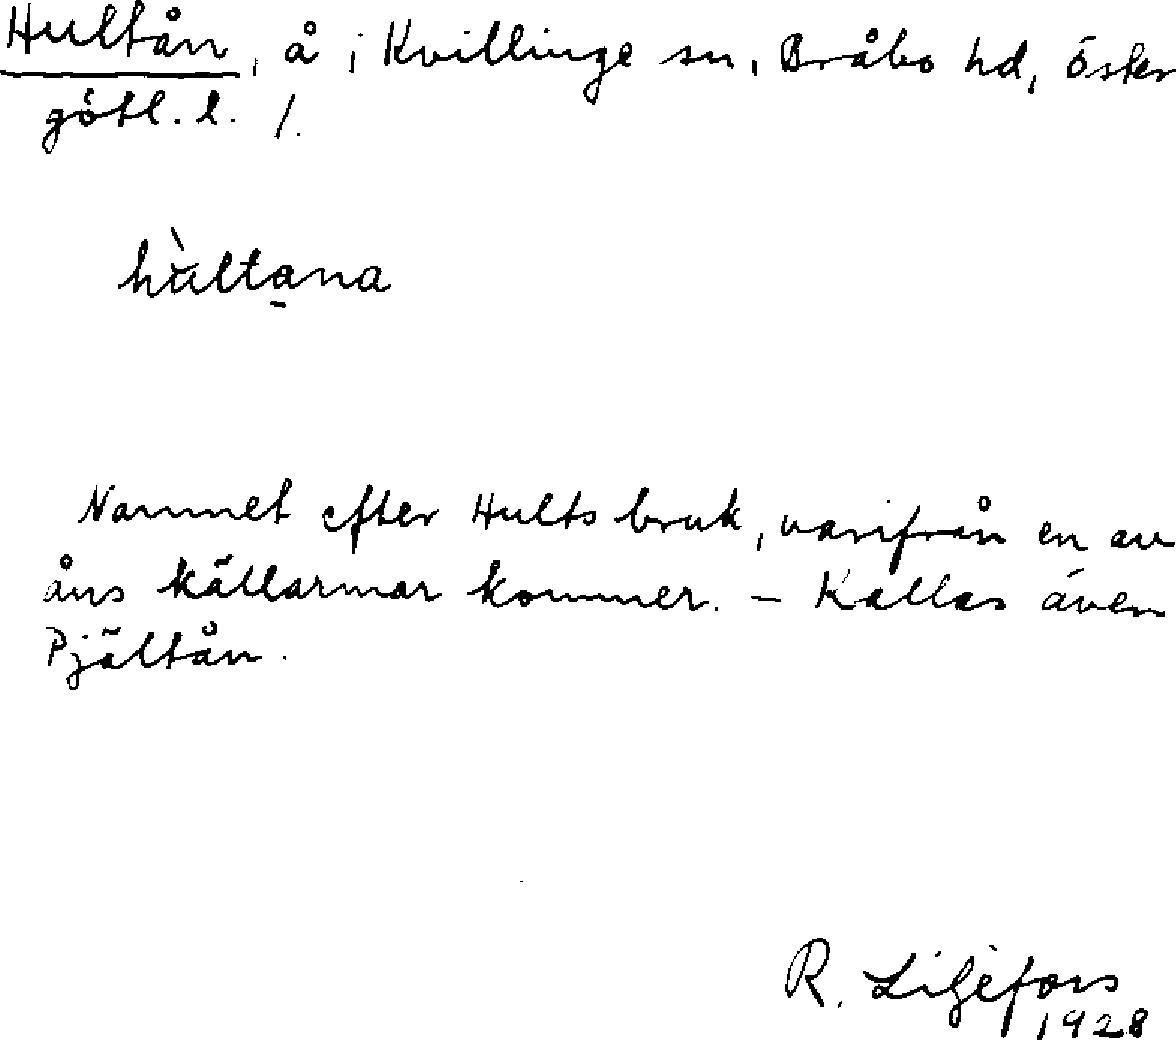 Hultån, å i Kvillinge sn, Bråbo hd, Öster
götl. l. /.
hùltana
Namnet efter Hults bruk, varifrån en av
åns källarmar kommer. – Kallas även
Pjältån.
R. Liljefors
1928